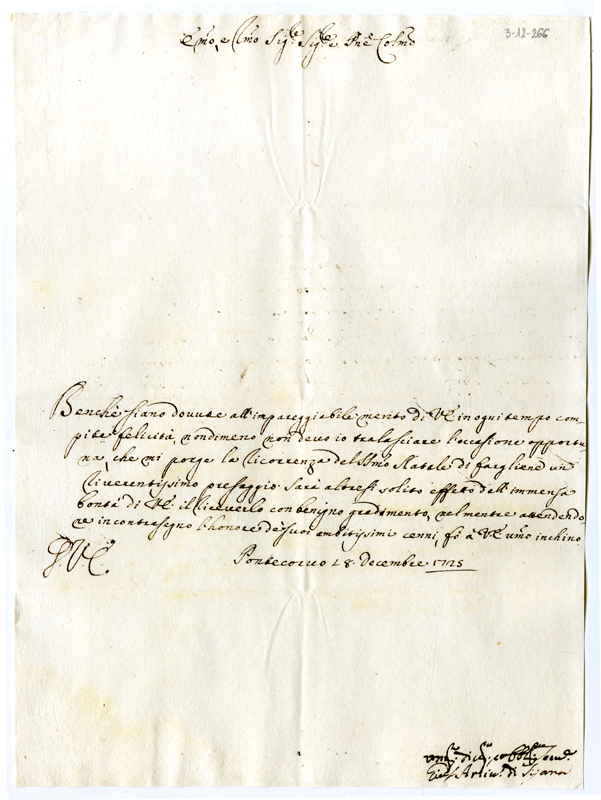 3-12-266
Emo, e Rmo Sigre Sigre Pne Colmo
Benche siano dovute all'impareggiabile merito di VE in ogni tempo com-
pite felicità, nondimeno non devo io tralasciare l'occasione opportu-
na, che mi porge la ricorrenza del SSmo Natale di fargliene un
riverentissimo presaggio. Sarà altresì solito effetto dell'immensa
bontà di VE il riceverlo con benigno gradimento, nel mentre attendendo-
ne in contrasegno l'honore de suoi ambitissimi cenni, fò à VE umo inchino
D. V. E.
Pontecorvo 28 Decembre 1725